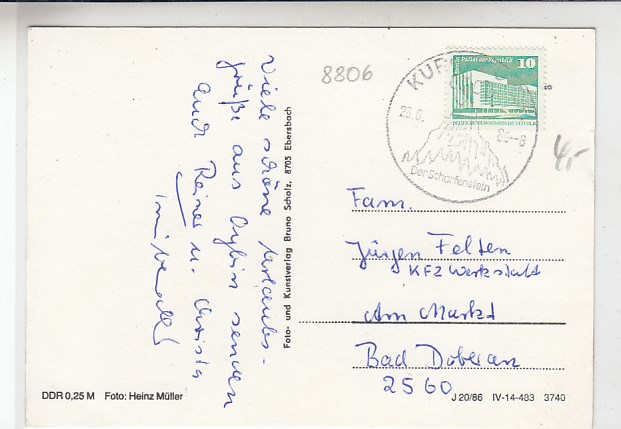 8806
Palast der Republik
10
DEUTSCHE DEMOKRATISCHE REPUBLIK
KUR
23.6.
86-8
Der Scharfenstein
8
4,-
Viele schöne Urlaubs-
grüße aus Oybin senden
auch Reiner u. Christa
Foto- und Kunstverlag Bruno Scholz, 8705 Ebersbach
Fam.
Jürgen Felten
KFZ Werkstatt
Am Markt
Bad Doberan
2560
DDR 0,25 M Foto: Heinz Müller
J 20/86 IV-14-483 3740